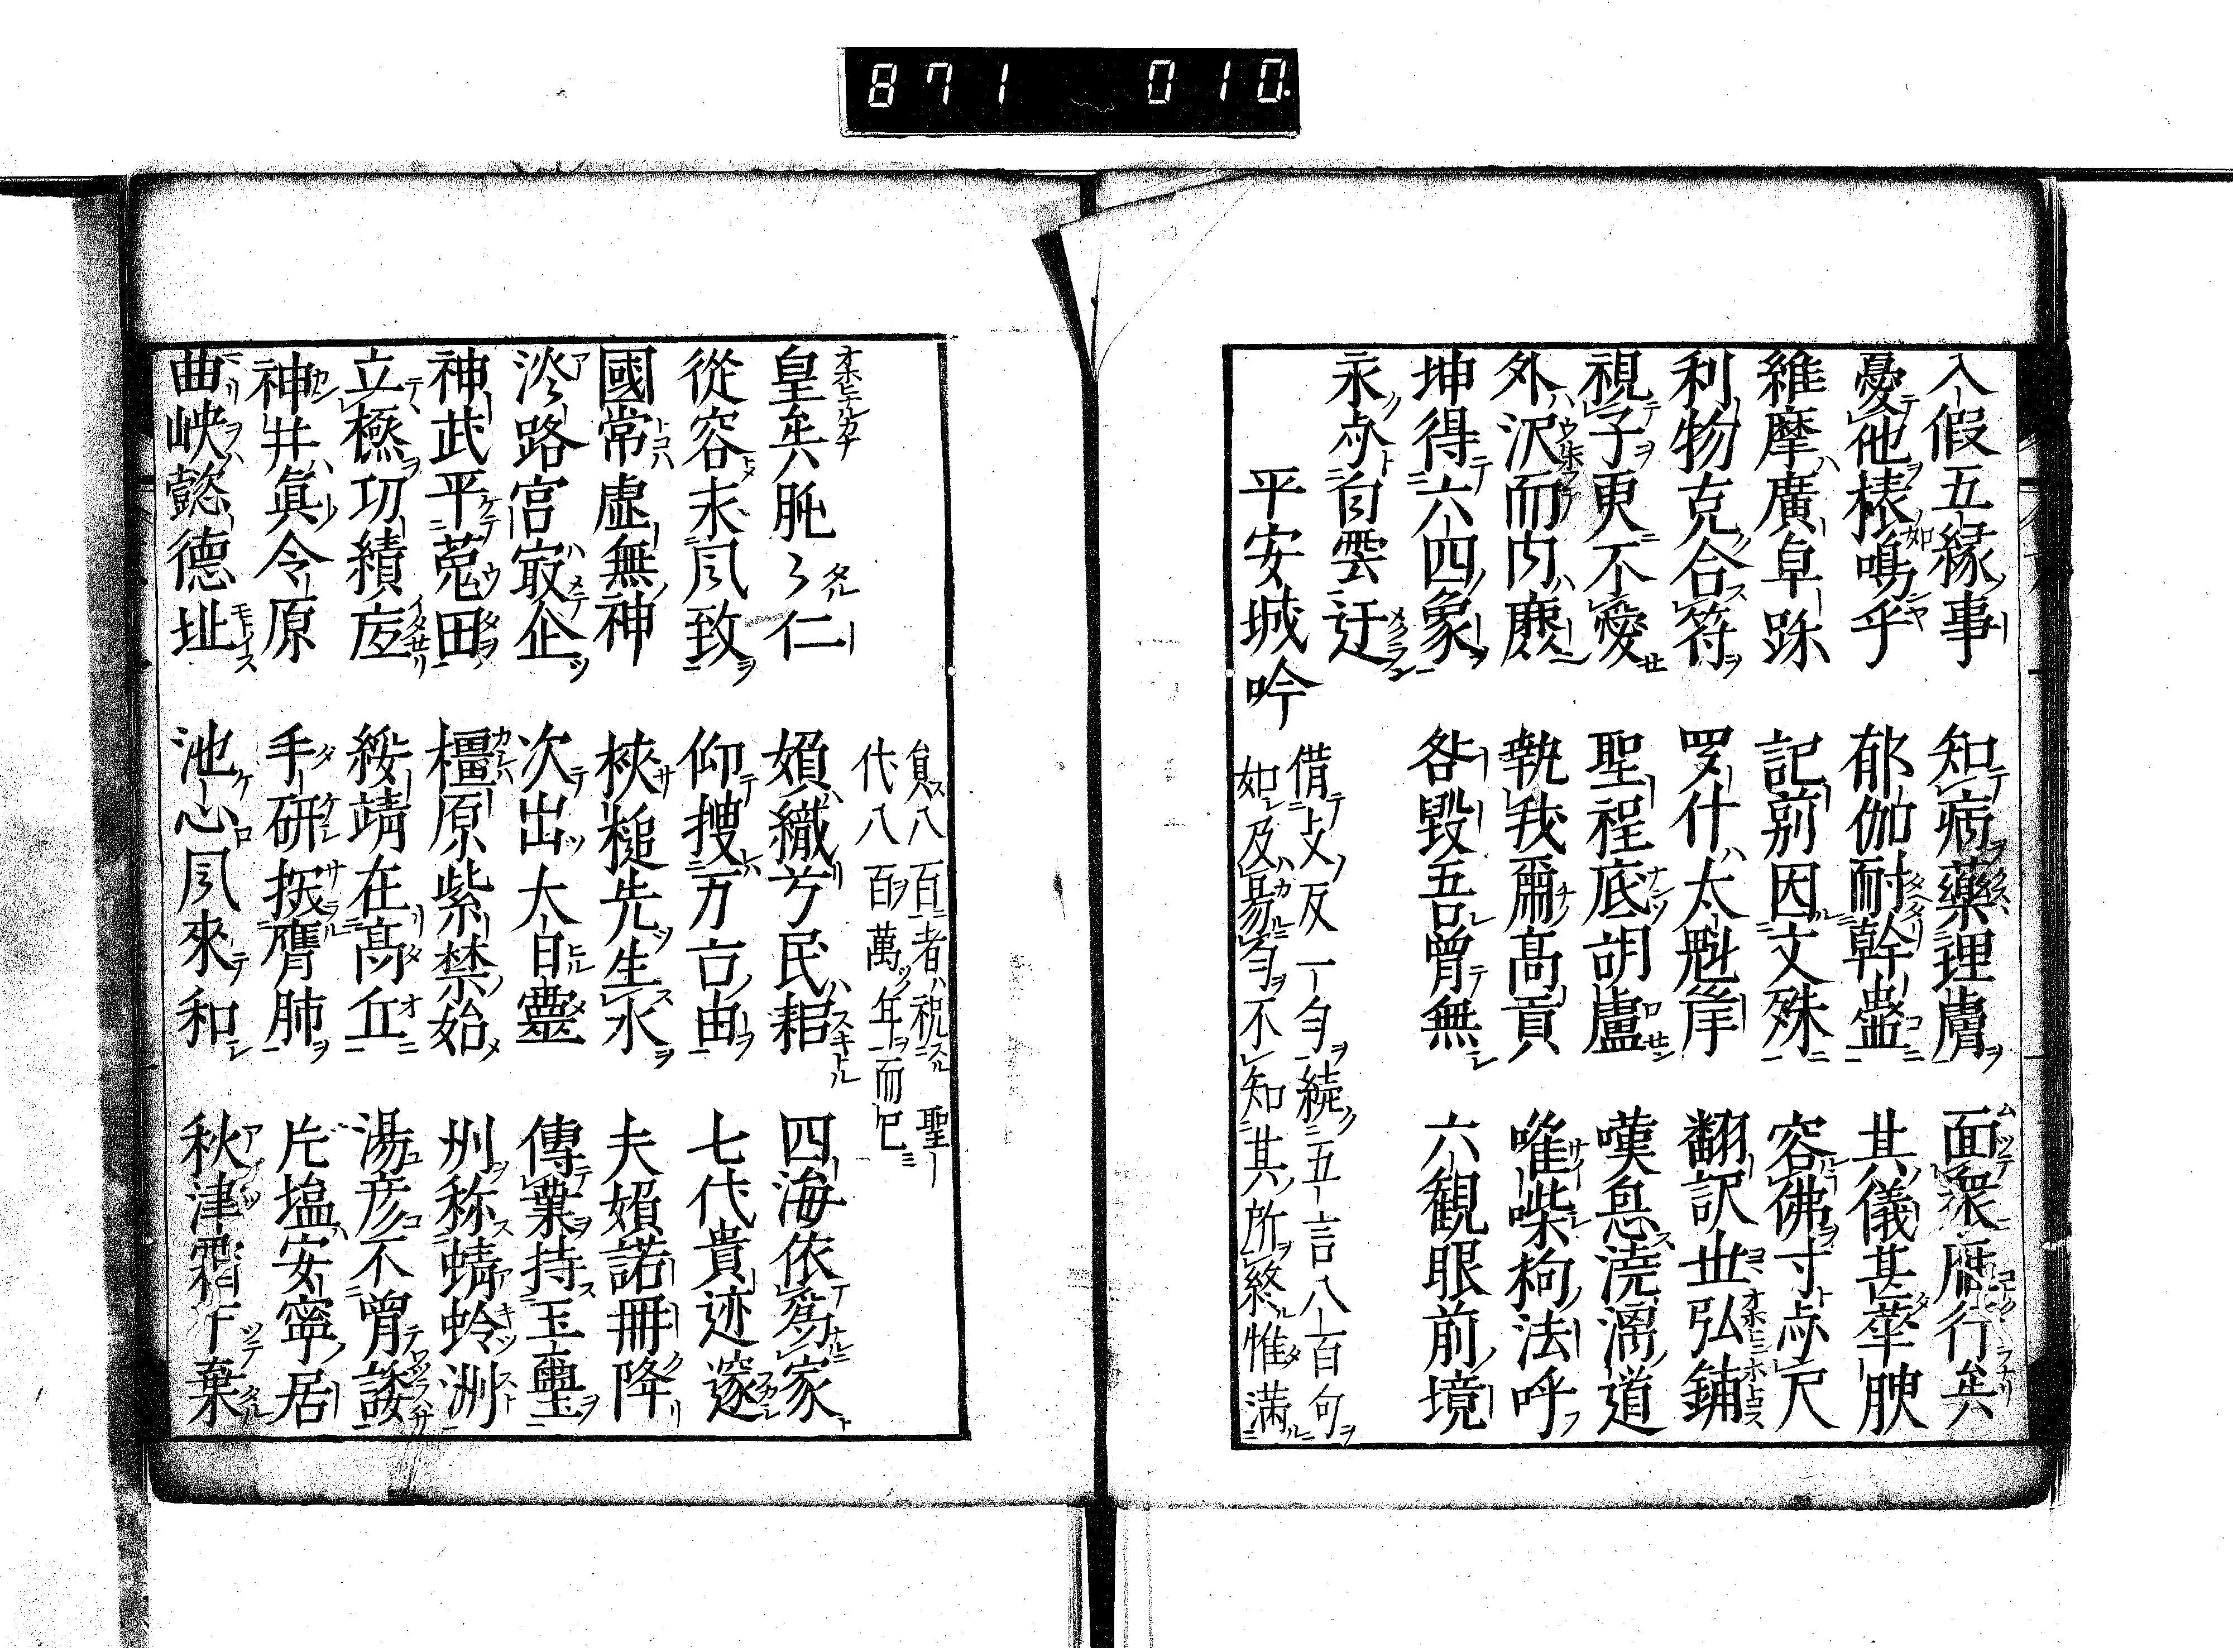 871 010
入假五縁事 知病藥理膚 面衆□行矣
憂他㯃鳴乎 郁伽耐幹蠱 其儀甚華腴
維摩廣阜跡 記別因文殊 容佛寸㸃尺
利物克合符 罗什太魁岸 翻訳丗弘鋪
視子更不愛 聖程底胡盧 嘆息澆漓道
外沢而内麃 執我爾高貢 唯柴枸法呼
坤得六四象 咎毀吾曽無 六観眼前境
永㸃白雲迂
平安城吟
借攴反一勻続五言八百句
如及昜勻不知其所終惟満
負八百者祝聖
代八百萬年而已
皇矣肫〻仁 媍織兮民耜 四海依為家
從容末風致 仰搜万古由 七代貴迹邃
國常虚無神 梜槌先生水 夫媍諾冊降
淡路宮㝡企 次出大日靈 傳業持玉璽
神武平菟田 橿原紫禁始 州称蜻蛉洲
立極功績㡯 綏靖在高丘 湯彦不曽諉
神井眞令原 手研拠膺肺 片塩安寧居
曲峡懿德址 池心風來和 秋津霜下棄